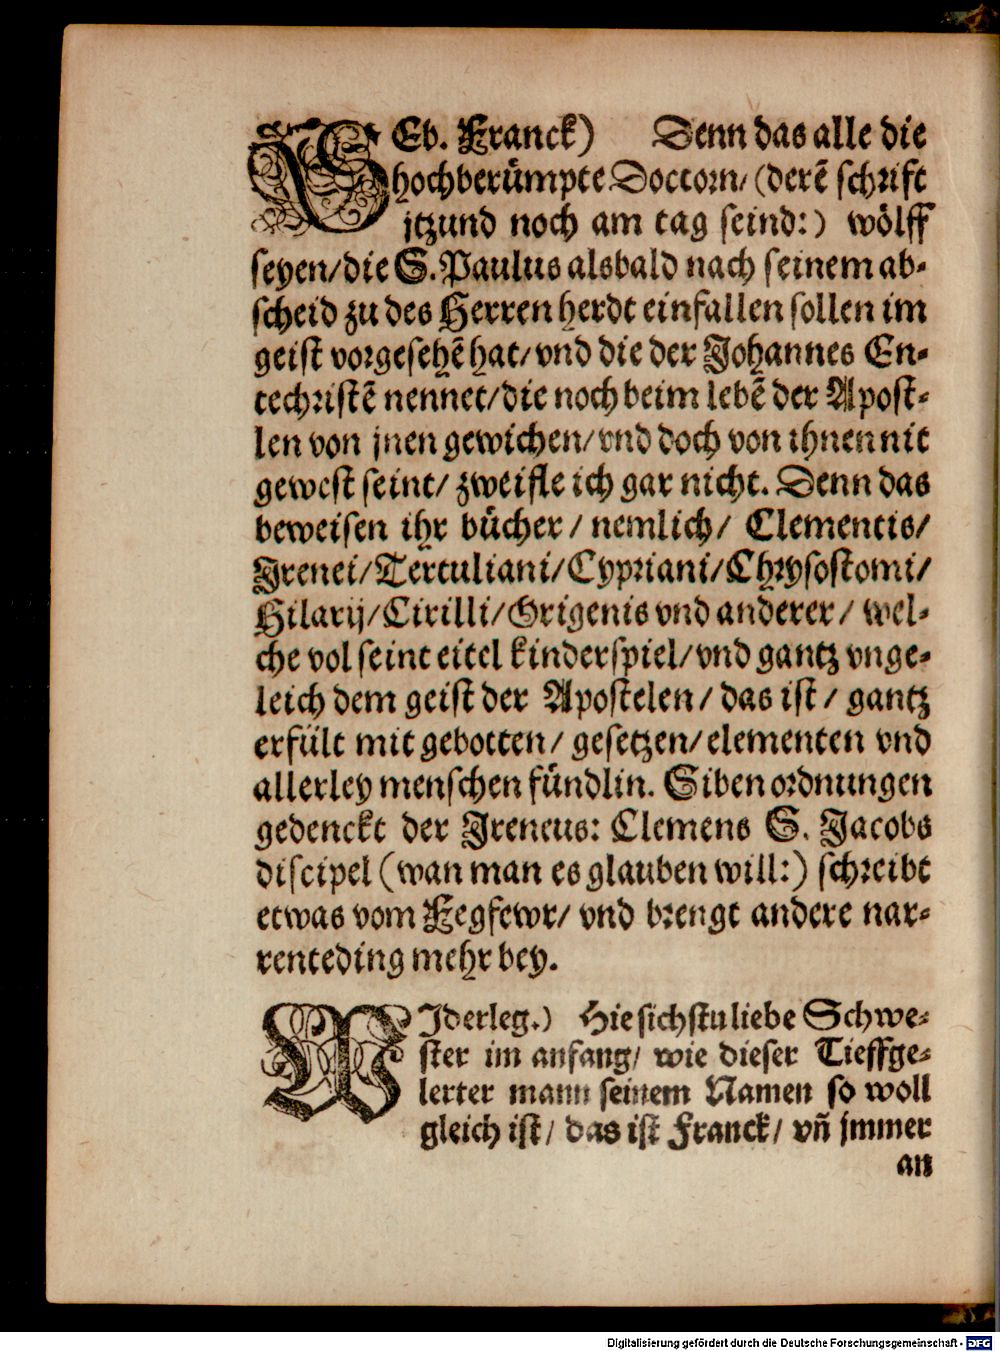 SEb. Franck) Denn das alle die
hochberümpte Doctorn/ (derẽ schrift
jtzund noch am tag seind:) wölff
seyen/die S. Paulus alsbald nach seinem ab-
scheid zu des Herren herdt einfallen sollen im
geist vorgesehẽ hat/ vnd die der Johannes En-
techristẽ nennet/die noch beim lebẽ der Apost-
len von jnen gewichen/vnd doch von ihnen nit
gewest seint/ zweifle ich gar nicht. Denn das
beweisen ihr bücher / nemlich/ Clementis/
Jrenei/Tertuliani/Cypriani/Chrysostomi/
Hilarij/Cirilli/Origenis vnd anderer / wel-
che vol seint eitel kinderspiel/vnd gantz vnge-
leich dem geist der Apostelen / das ist / gantz
erfült mit gebotten/ gesetzen/elementen vnd
allerley menschen fündlin. Siben ordnungen
gedenckt der Jreneus: Clemens S. Jacobs
discipel (wan man es glauben will:) schreibt
etwas vom Fegfewr/ vnd brengt andere nar-
renteding mehr bey.
WJderleg.) Hie sichstu liebe Schwe-
ster im anfang/ wie dieser Tieffge-
lerter mann seinem Namen so woll
gleich ist/ das ist Franck/ vñ jmmer
an
Digitalisierung gefördert durch die Deutsche Forschungsgemeinschaft - DFG